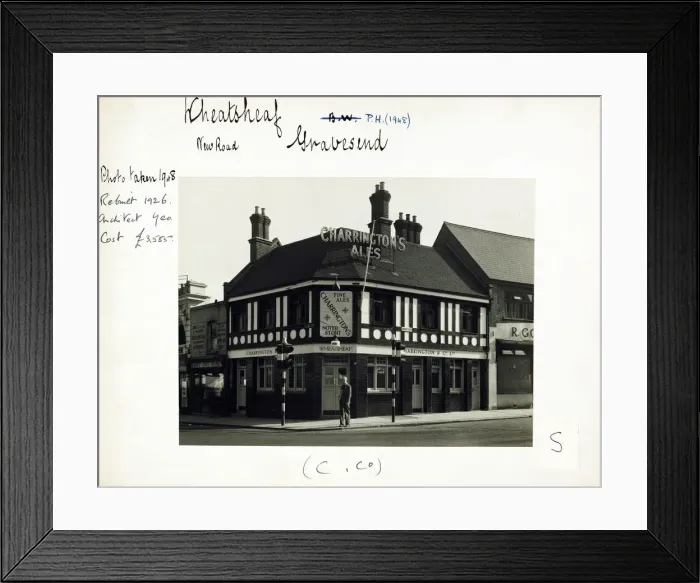 Wheatsheaf
B.W. P.H. (1948)
New Road
Gravesend
Photo taken 1948
Rebuilt 1926.
Architect Geo
Cost £3,585-
CHARRINGTON'S
ALES
FINE
ALES
CHARRINGTON'S
NOTED
STOUT
CHARRINGTON
WHEATSHEAF
CHARRINGTON & Co LTD
R.GO
S
(C. Co)